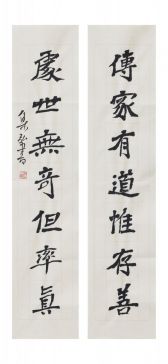 傳家有道惟存善
處世無奇但率真